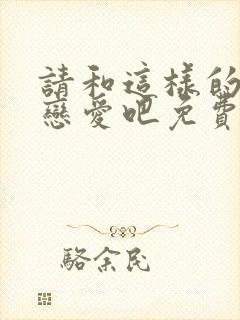 請和這樣的
戀愛吧免費
駱余民